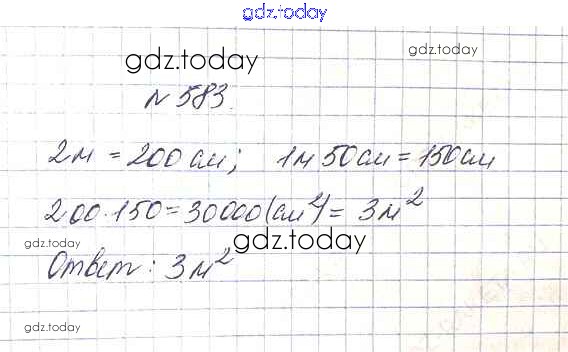 gdz.today
gdz.today
gdz.today
N 583.
2м = 200 см; 1м 50см = 150см
200·150 = 30000 (см²) = 3м²
gdz.today
gdz.today
Ответ: 3м²
gdz.today
gdz.today